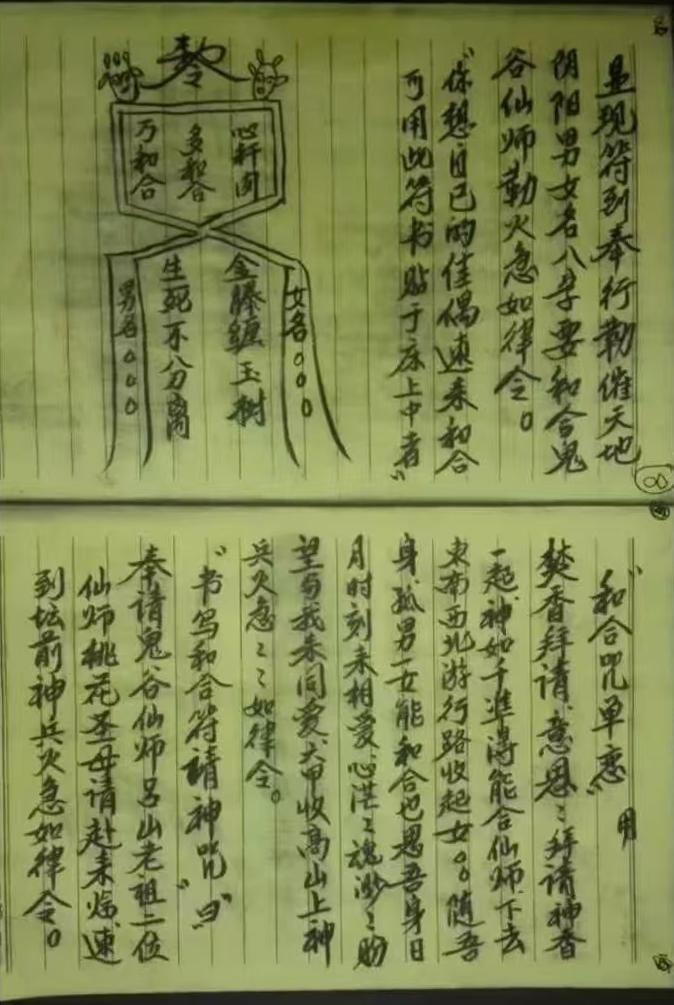 显现符到奉行勒催天地
阴阳男女名八字要和合鬼
谷仙师勒火急如律令。
“你想自己的佳偶速来和合
可用此符书贴于床上中者”
奉令
心肝肉
多和合
万和合
女名〇〇〇
金滕缠玉树
生死不分离
男名〇〇〇
“和合咒单恋”用
焚香拜请意恩〻拜请神香
一起神如千准得能合仙师下去
东南西北游行路收起女〇〇随吾
身孤男一女能和合也恩吾身日
月时刻来相爱心茫〻魂渺〻盼
望与我来同爱犬甲收高山上神
兵火急〻〻如律令。
“书写和合符请神咒”曰
奉请鬼谷仙师吕山老祖二位
仙师桃花圣母请赴来临速
到坛前神兵火急如律令。